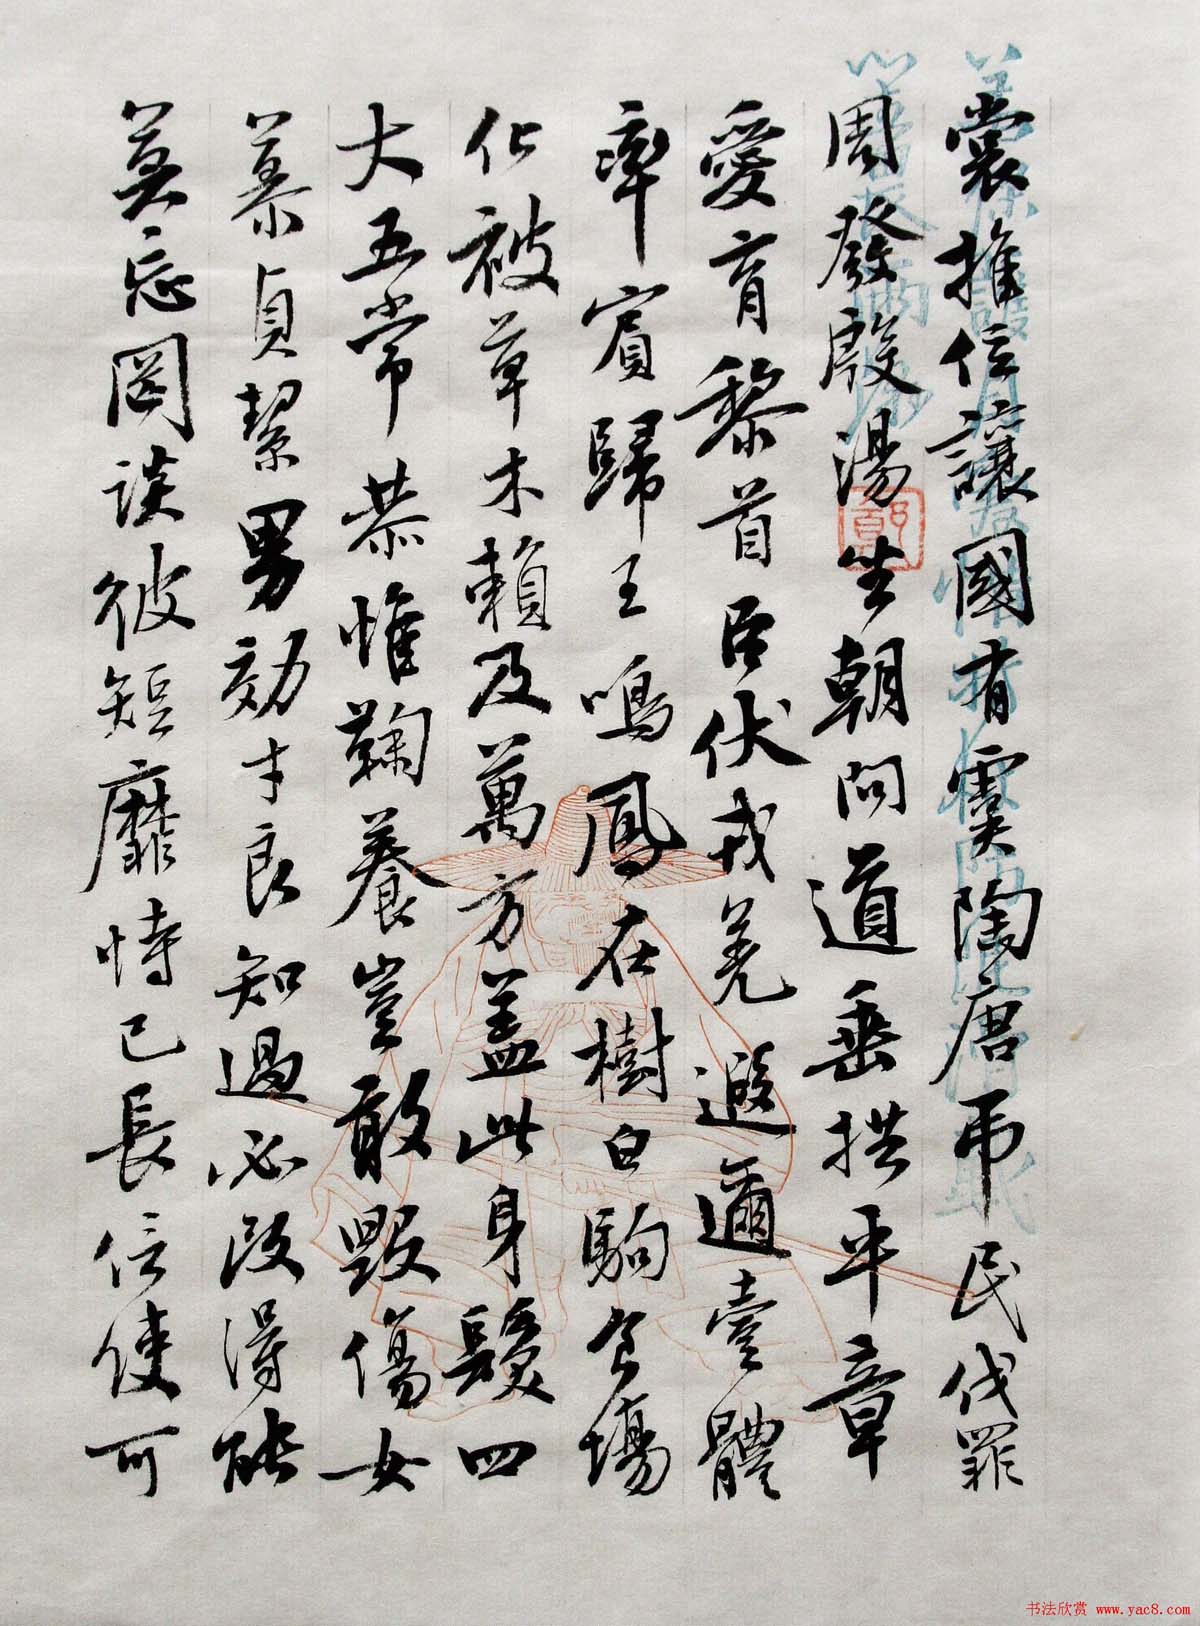 裳推位讓國有虞陶唐吊民伐罪
周發殷湯坐朝問道垂拱平章
愛育黎首臣伏戎羌遐邇壹體
率賓歸王鳴鳳在樹白駒食場
化被草木賴及萬方盖此身髮四
大五常恭惟鞠養豈敢毀傷女
慕貞絜男効才良知過必改得能
莫忘罔談彼短靡恃己長信使可
书法欣赏 www.yac8.com